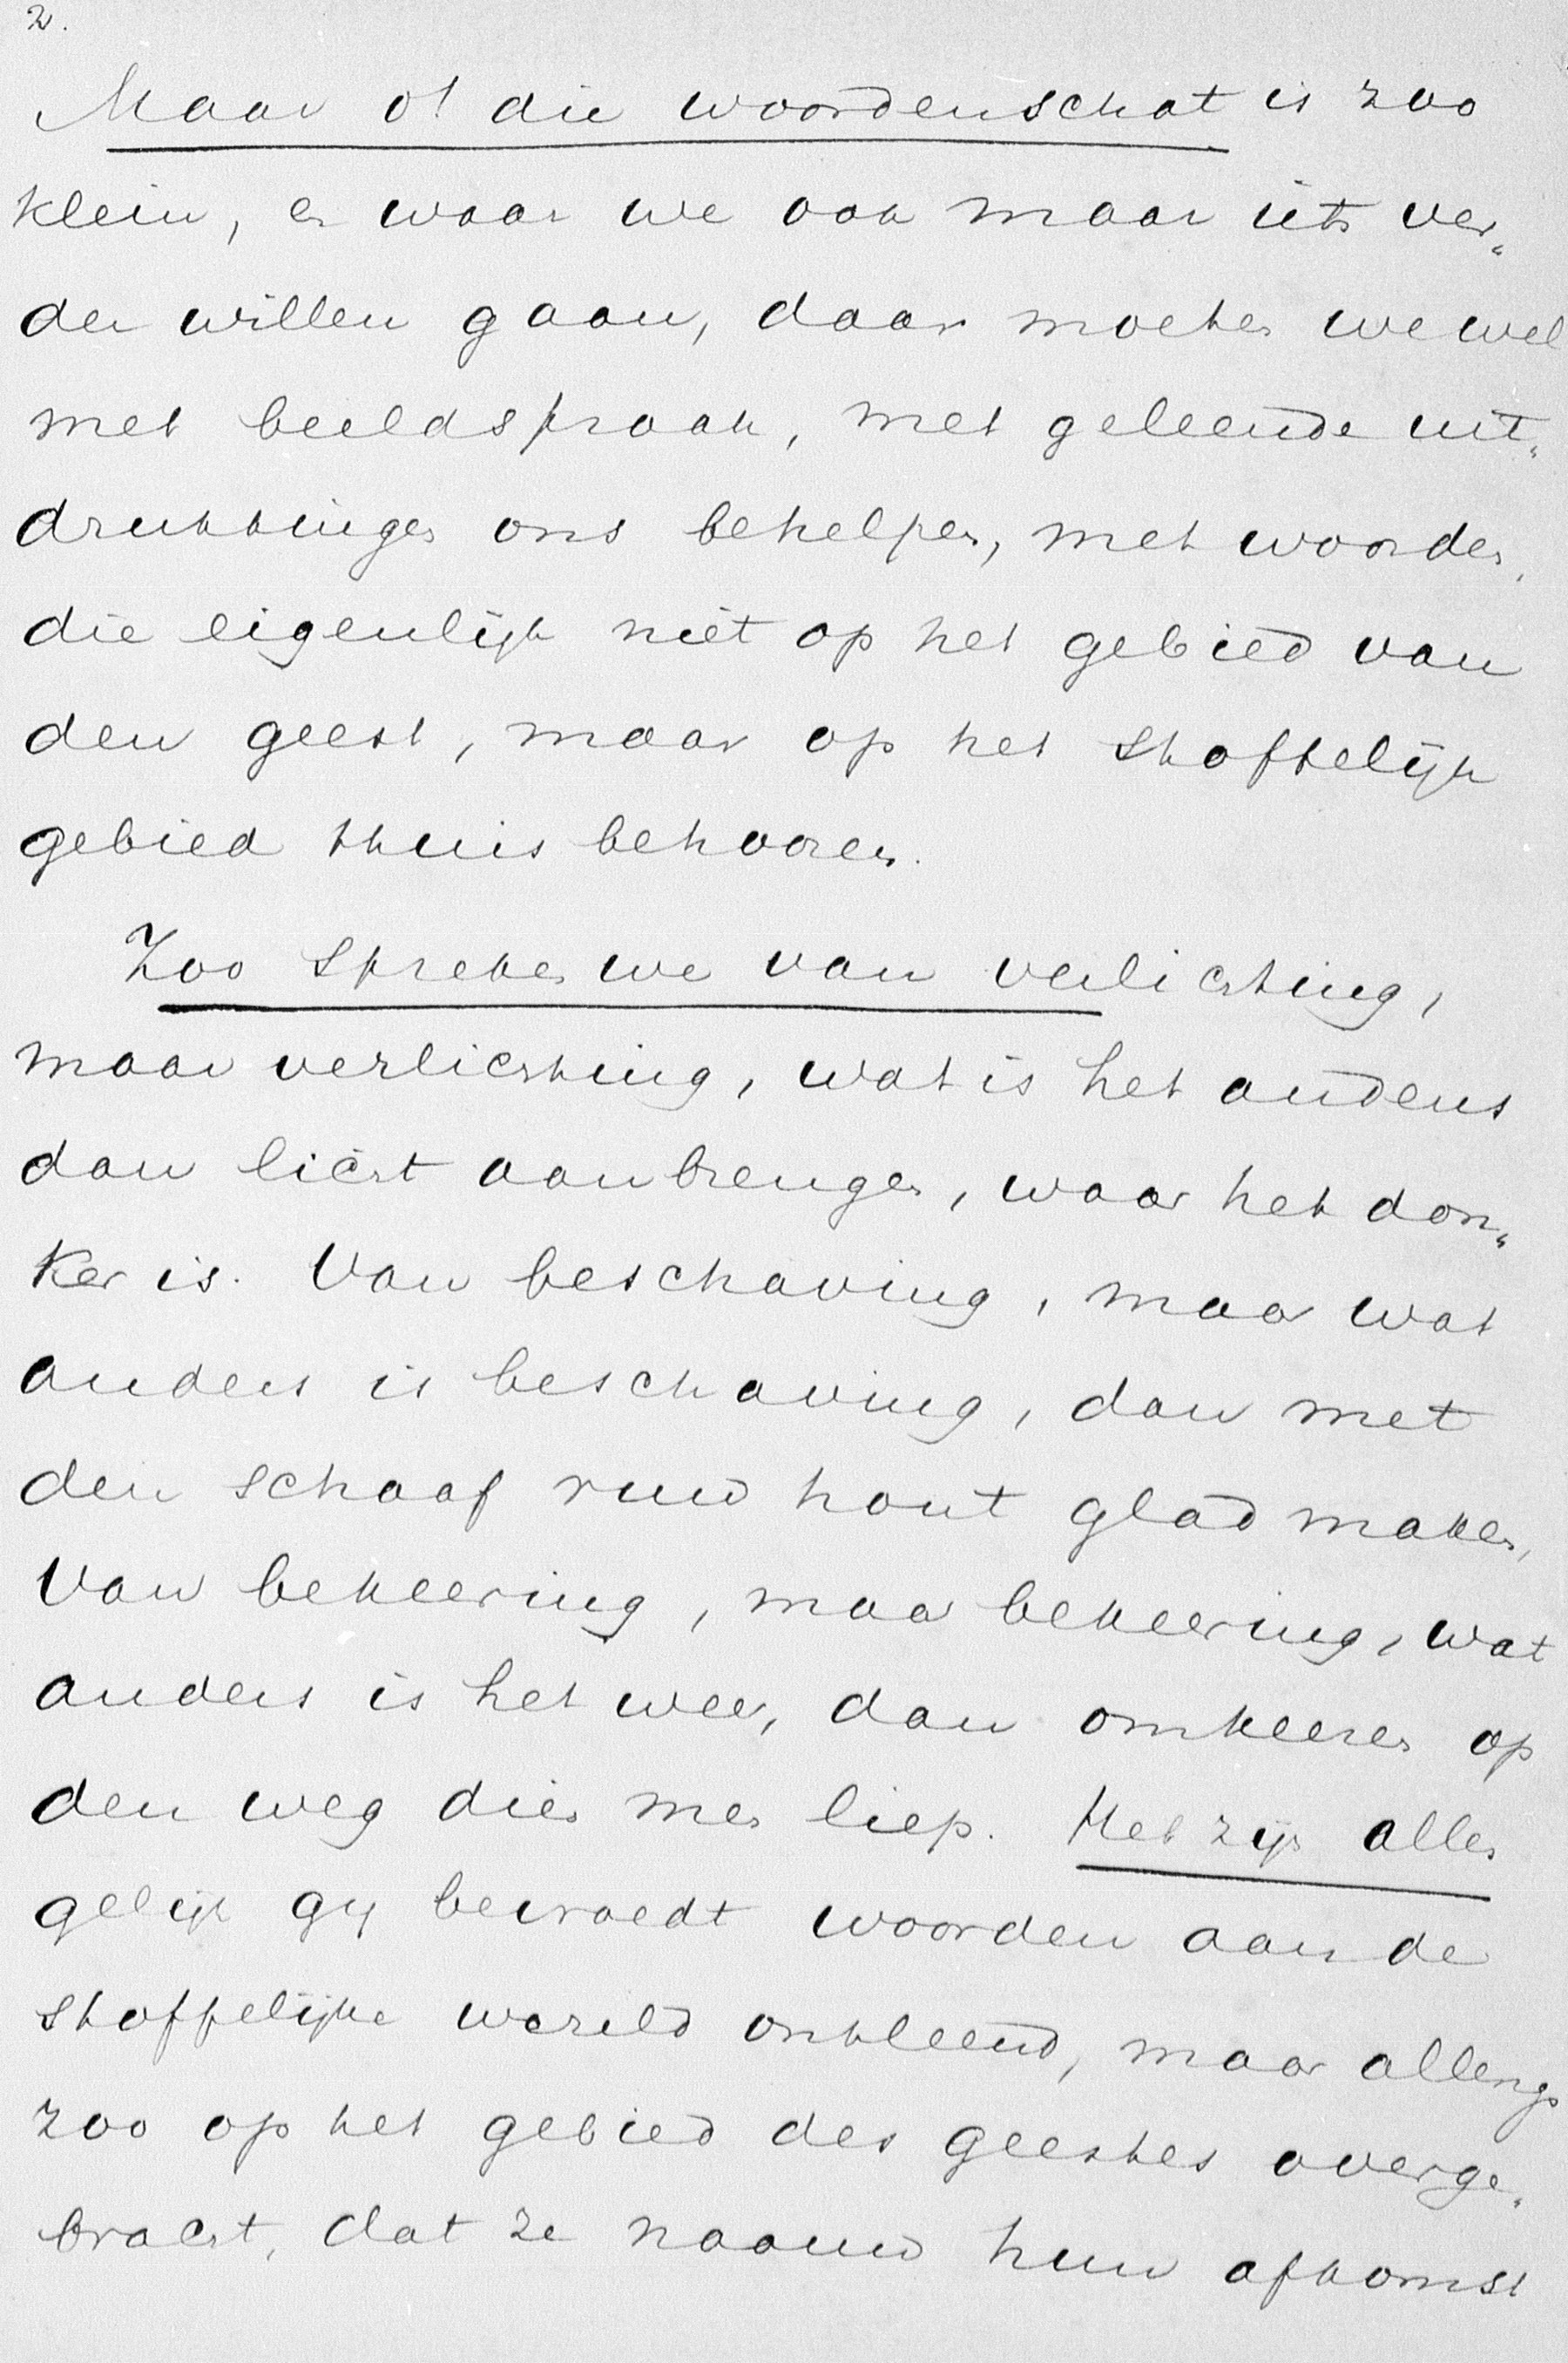 2.
Maar o! die woordenschat is zoo
klein, en waar we ook maar iets ver„
der willen gaan, daar moeten we wel
met beeldspraak, met geleende uit„
drukkingen ons behelpen, met woorden,
die eigenlijk niet op het gebied van
den geest, maar op het stoffelijk
gebied thuis behooren.
Zoo spreken we van verlichting,
maar verlichting, wat is het anders
dan licht aanbrengen, waar het don„
ker is. Van beschaving, maar wat
anders is beschaving, dan met
den schaaf ruw hout glad maken,
Van bekeering, maar bekeering, wat
anders is het weer, dan omkeeren op
den weg dien men liep. Het zijn allen
gelijk gij bevroedt woorden aan de
stoffelijke wereld ontleend, maar allengs
zoo op het gebied des geestes overge„
bracht, dat ze naauw hun afkomst